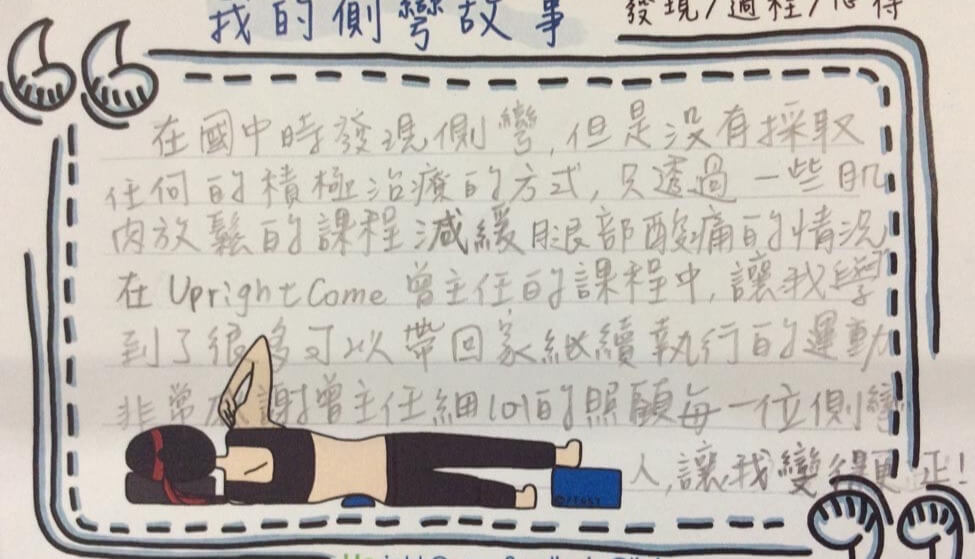 我的側彎故事 發現/過程/心得
在國中時發現側彎,但是沒有採取
任何的積極治療的方式,只透過一些肌
肉放鬆的課程減緩腿部酸痛的情況
在 Upright Come 曾主任的課程中,讓我學
到了很多可以帶回家繼續執行的運動
非常感謝曾主任細心的照顧每一位側彎
人,讓我變得更正!